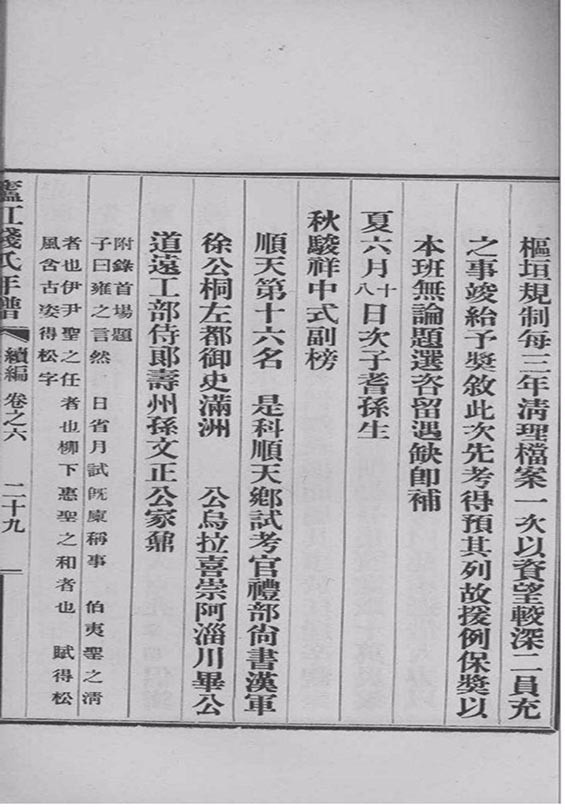 樞垣規制每三年清理檔案一次以資望較深二員充
之事竣給予獎敘此次先考得預其列故援例保獎以
本班無論題選咨留遇缺卽補
夏六月十八日次子耆孫生
秋駿祥中式副榜
順天第十六名 是科順天鄉試考官禮部尚書漢軍
徐公桐左都御史滿洲 公烏拉喜崇阿淄川畢公
道遠工部侍郎壽州孫文正公家鼐
附錄首場題
子曰雍之言然 日省月試旣廩稱事 伯夷聖之淸
者也伊尹聖之任者也柳下惠聖之和者也 賦得松
風含古姿得松字
廬江錢氏年譜 續編 卷之六 二十九